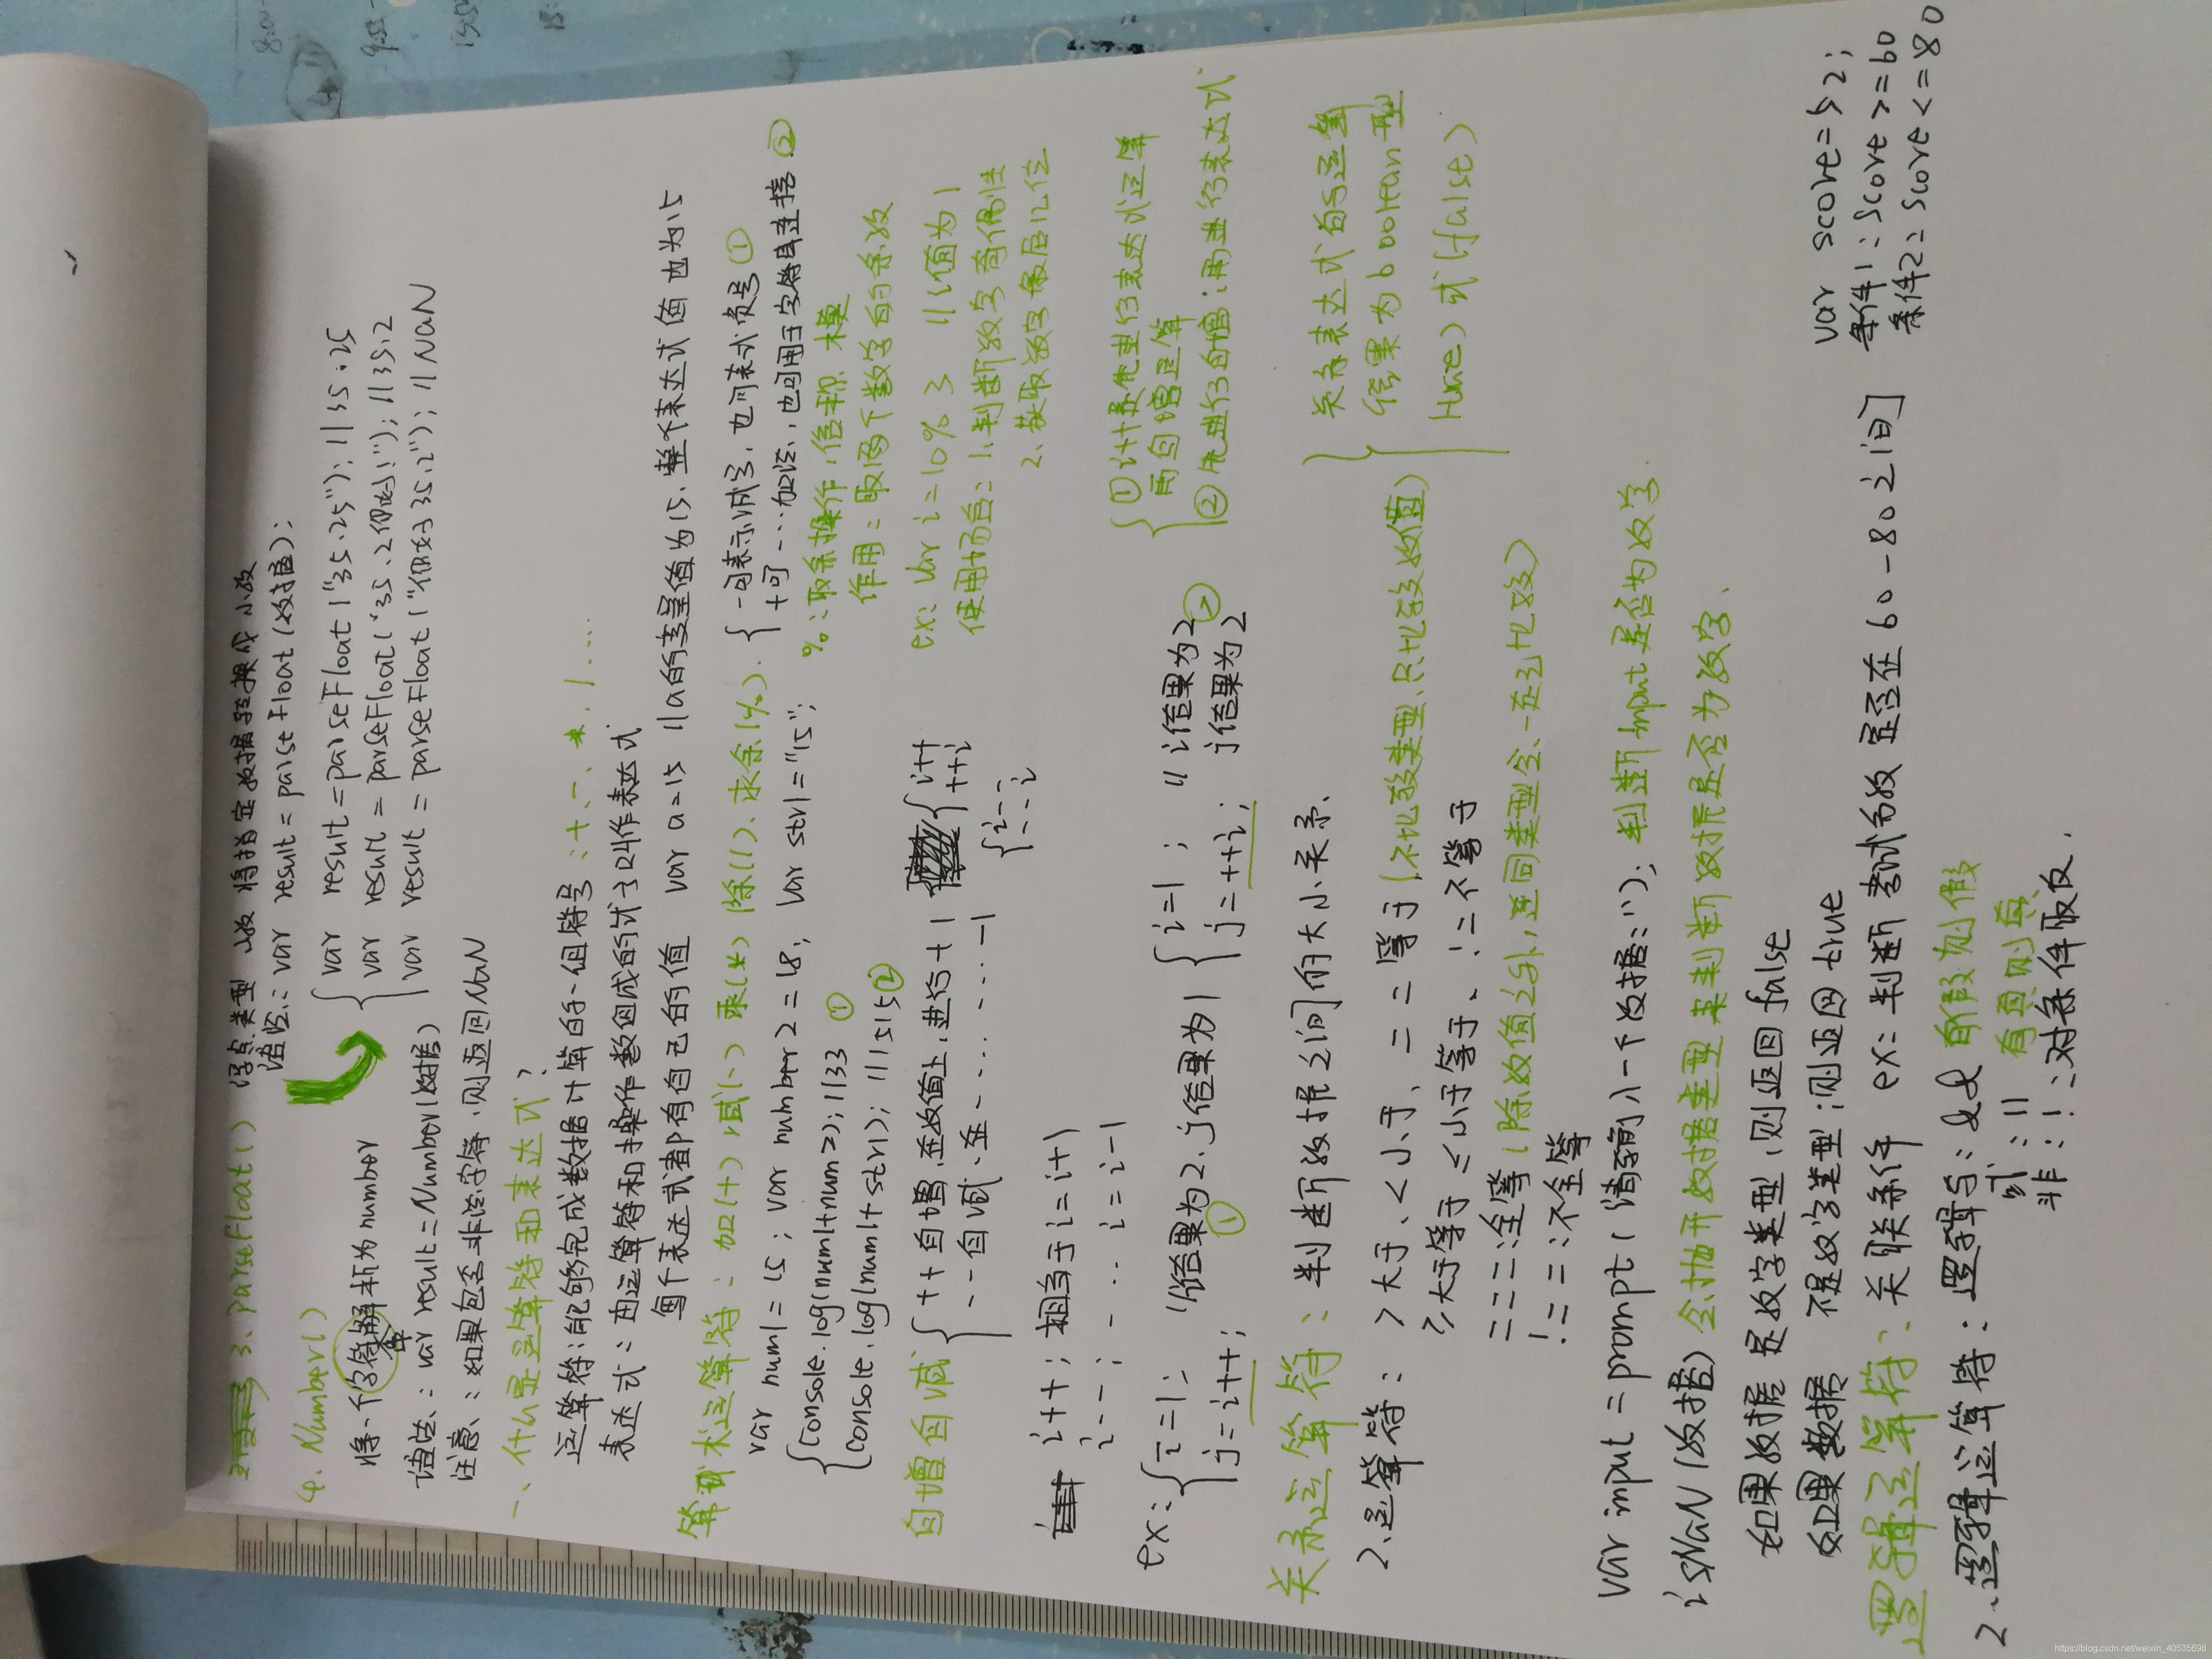 3. parseFloat() 浮点类型 小数 将指定数据转换成小数
语法: var result = parseFloat(数据);
var result = parseFloat("35.25"); //35.25
var result = parseFloat("35.2你好!"); //35.2
var result = parseFloat("你好35.2"); //NaN
4. Number()
将一个字符解析为number
字串
语法: var result = Number(数据)
注意: 如果包含非法字符,则返回NaN
一、什么是运算符和表达式?
运算符:能够完成数据计算的一组符号:+、-、*、/ ...
表达式:由运算符和操作数组成的式子叫作表达式
每个表达式都有自己的值 var a=15 //a的变量值为15,整个表达式值也为15
算术运算符: 加(+) 减(-) 乘(*) 除(/)、求余(%).
-可表示减号,也可表示负号①
+可...加法,也可用于字符串连接②
var num1=15; var number2=18; var str1="15";
console.log(num1+num2); //33 ①
console.log(num1+str1); //1515②
%:取余操作,俗称 模
作用:取两个数字的余数
ex: var i=10%3 //值为1
使用场合: 1.判断数字奇偶性
2、获取数字最后几位
自增自减
++自增,在数值上,进行+1
--自减,在.......-1
i++
++i
i--
--i
i++; 相当于i=i+1
i--; - ... i=i-1
①i++是先进行表达式运算
再自增运算
②先进行自增;再进行表达式
ex: i=1; i结果为2.j结果为1
j=i++; ①
i=1; "i结果为2②
j=++i; j结果为2
关系运算符: 判断数据之间的大小关系.
关系表达式的运算
结果为boolean型
(true)或(false)
2.运算符: >大于、<小于、==等于(不比较类型,只比较数值)
≥大于等于 ≤小于等于、!=不等于
===:全等(除数值之外,连同类型会一起比较)
!==:不全等
var input = prompt("请输入一个数据:"); 判断input是否为数字.
isNaN(数据) 会抛开数据类型来判断数据是否为数字、
如果数据 是数字类型,则返回false
如果数据 不是数字类型;则返回true
逻辑运算符: 关联条件 ex:判断考试分数是否在60-80之间
var score=52;
条件1: score>=60
条件2: score<=80
2.逻辑运算符: 逻辑与:&& 有假则假
或:|| 有真则真
非:! :对条件取反.
https://blog.csdn.net/weixin_40535698